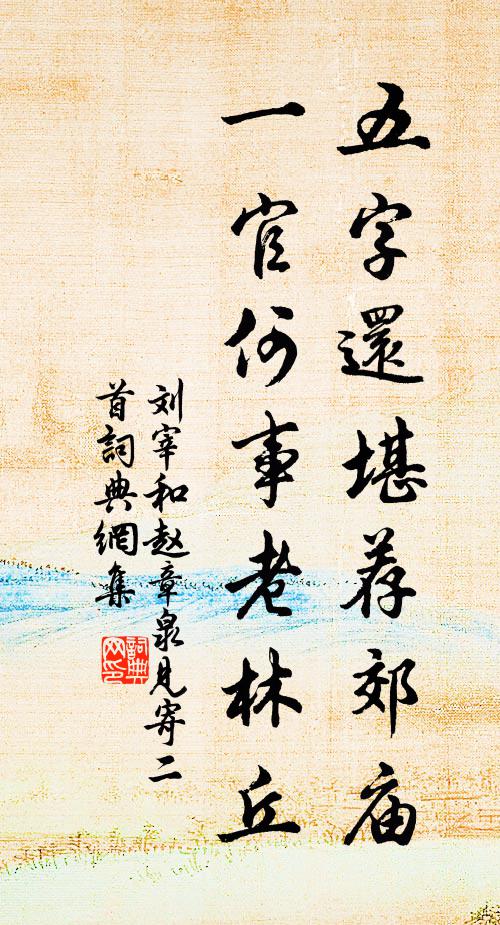 五字還堪荐郊庙
一官何事老林丘
刘宰和赵章泉見寄二
首詞典網集
詞典网印